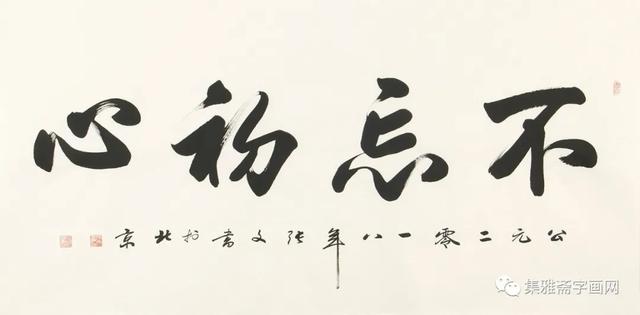 不忘初心
公元二零一八年张文书於北京
集雅斋字画网